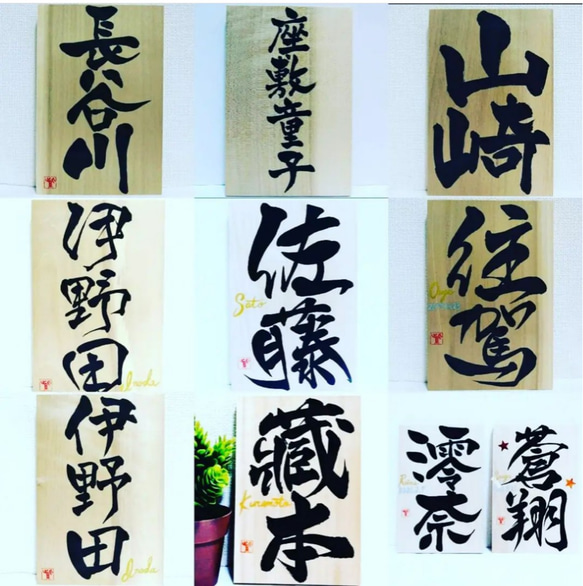 長谷川
座敷童子
山崎
伊野田
Inoda
佐藤
Sato
往駕
伊野田
Inoda
藏本
Kuramoto
澪奈
蒼翔